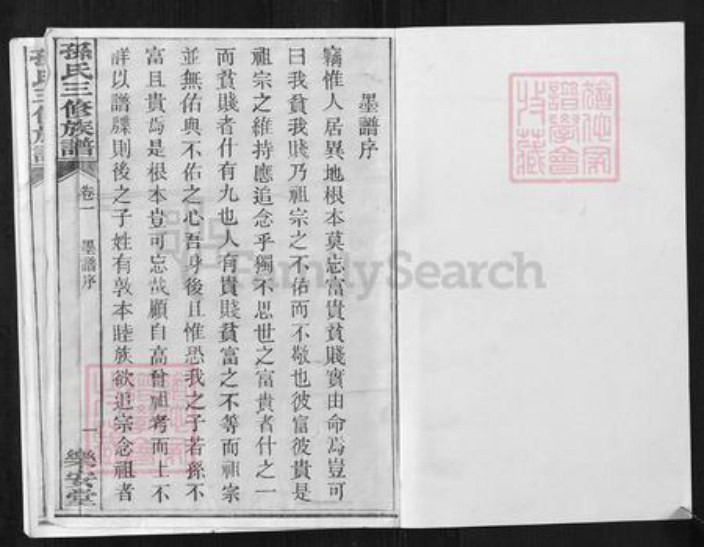 墨譜序
竊惟人居異地根本莫忘富貴貧賤實由命焉豈可
曰我貧我賤乃祖宗之不佑而不敬也彼富彼貴是
祖宗之維持應追念乎獨不思世之富貴者什之一
而貧賤者什有九也人有貴賤貧富之不等而祖宗
並無佑與不佑之心吾身後且惟恐我之子若孫不
富且貴焉是根本豈可忘哉願自高曾祖考而上不
詳以譜牒則後之子姓有敦本睦族欲追宗念祖者
孫氏三修族譜
卷一
墨譜序
一
樂安堂
孫氏三修族譜
FamilySearch